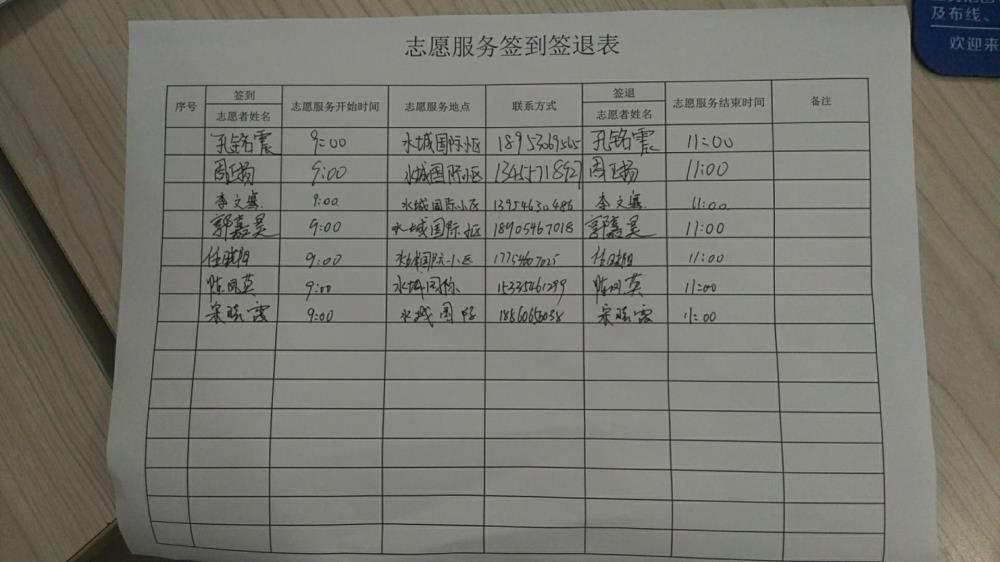 及布线、
欢迎来
志愿服务签到签退表
序号 签到 志愿服务开始时间 志愿服务地点 联系方式 签退 志愿服务结束时间 备注
志愿者姓名 志愿者姓名
孔铭震 9:00 水城国际小区 1895369565 孔铭震 11:00
周正扬 9:00 水城国际小区 13455718927 周正扬 11:00
李文 9:00 水城国际小区 13954630486 李文 11:00
郭嘉昊 9:00 水城国际小区 18905467018 郭嘉昊 11:00
任 9:00 水城国际小区 17754607025 任 11:00
陈凤英 9:00 水城国际 15335461299 陈凤英 11:00
宋晓霞 9:00 水城国际 18860650038 宋晓霞 11:00